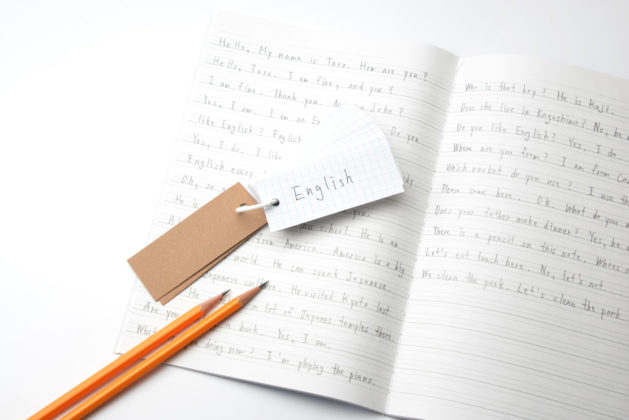 Hello, My name is Tara. How are you?
Hello, Tara. I am fine, and you?
I am fine. Thank you. John?
Yes, I am. I am an En Do you
like English? English
Yes, I do. I like
English every
Oh, so
He is
school. He is an
from America. America is a big
world. He can speak Japanese.
Japanese culture. He visited Kyoto last
a lot of Japanes temples there.
Are you book. Yes, I am.
What doing now? I'm playing the piano.
English
Who is that boy? He is Kojt.
Does she live in Kagoshima? No, he
Do you like English? Yes, I do.
Where are you from? I am from
Which racket do you use? I use th
Please come here. OK. What do you
Does your father make dinner? Yes, he
There is a pencil on this note. Where
Let's eat lunch here. No, let's not
We clean the park. Let's clean the park